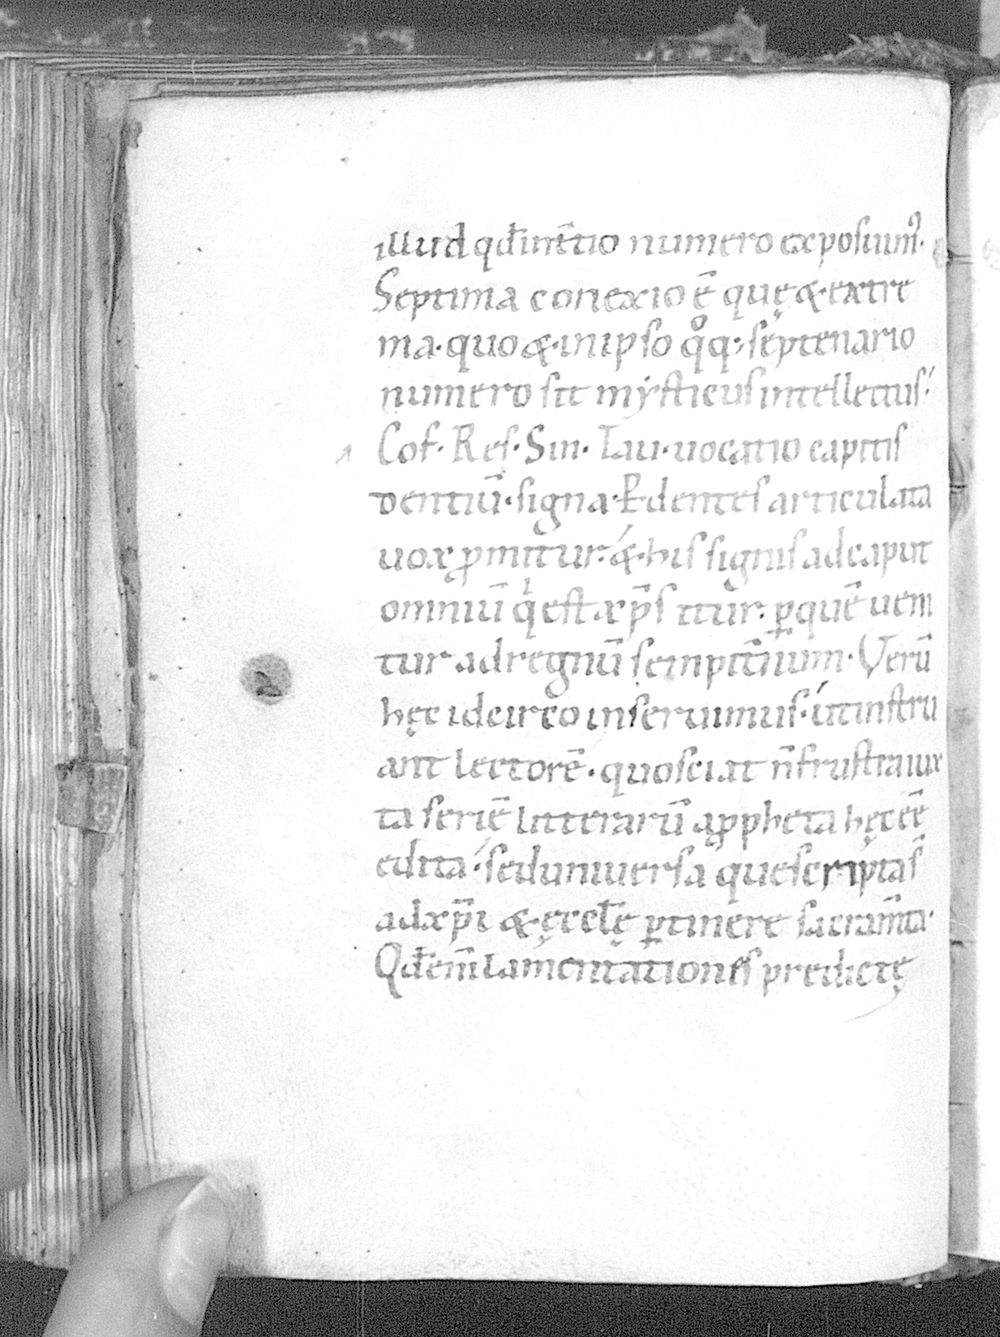 illud qđ in t̄tio numero exposuim᷒·
Septima conexio ē quę & extre
ma· quo & in ipso qͦq; septenario
numero sit mẏsticus intellectus·
Cof· Res· Sin· Tau· uocatio capitis
dentiū· signa· Per dentes articulata
uox ꝓmitur· & his signis ad caput
omniū qͥ est xp̄s itur· ꝑ quē ueni
tur ad regnū sempit̄num· Verū
hęc idcirco inseruimus· út instru
ant lectorē· quo sciat n̄ frustra iux
ta seriē litterarū a ꝓpheta hęc eē̄
edita· sed uniuersa que scripta s̄
ad xp̄i & ęccl̄ę ꝑtinere sacram̄ta·
Qđ em̄ lamentationes predictę